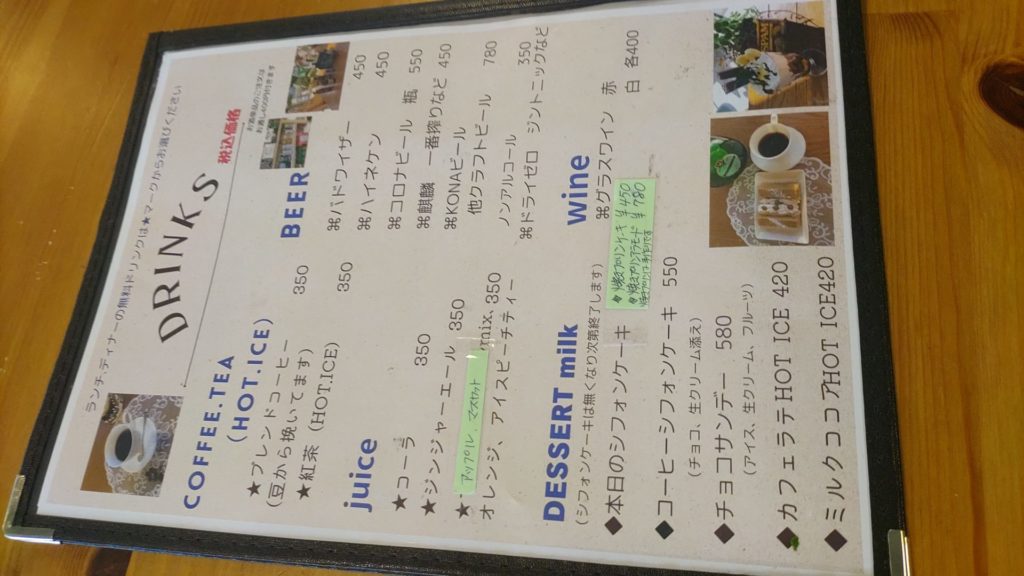 ランチ・ディナーの無料ドリンクは★マークからお選びください
DRINKS
税込価格
COFFEE.TEA
(HOT.ICE)
★ブレンドコーヒー 350
(豆から挽いてます)
★紅茶 (HOT.ICE) 350
juice
★コーラ 350
★ジンジャーエール 350
★ アップル、マスカット mix, 350
オレンジ、アイスピーチティー
BEER
⌘バドワイザー 450
⌘ハイネケン 450
⌘コロナビール 瓶 550
⌘麒麟 一番搾りなど 450
⌘KONAビール
他クラフトビール 780
ノンアルコール 350
⌘ドライゼロ ジントニックなど
wine
⌘グラスワイン 赤
白 各400
DESSERT milk
(シフォンケーキは無くなり次第終了します)
◆本日のシフォンケーキ
焼きプリンケーキ ¥450
焼きプリンアラモード ¥780
◆コーヒーシフォンケーキ 550
(チョコ、生クリーム添え)
◆チョコサンデー 580
(アイス、生クリーム、フルーツ)
◆カフェラテHOT ICE 420
◆ミルクココアHOT ICE420